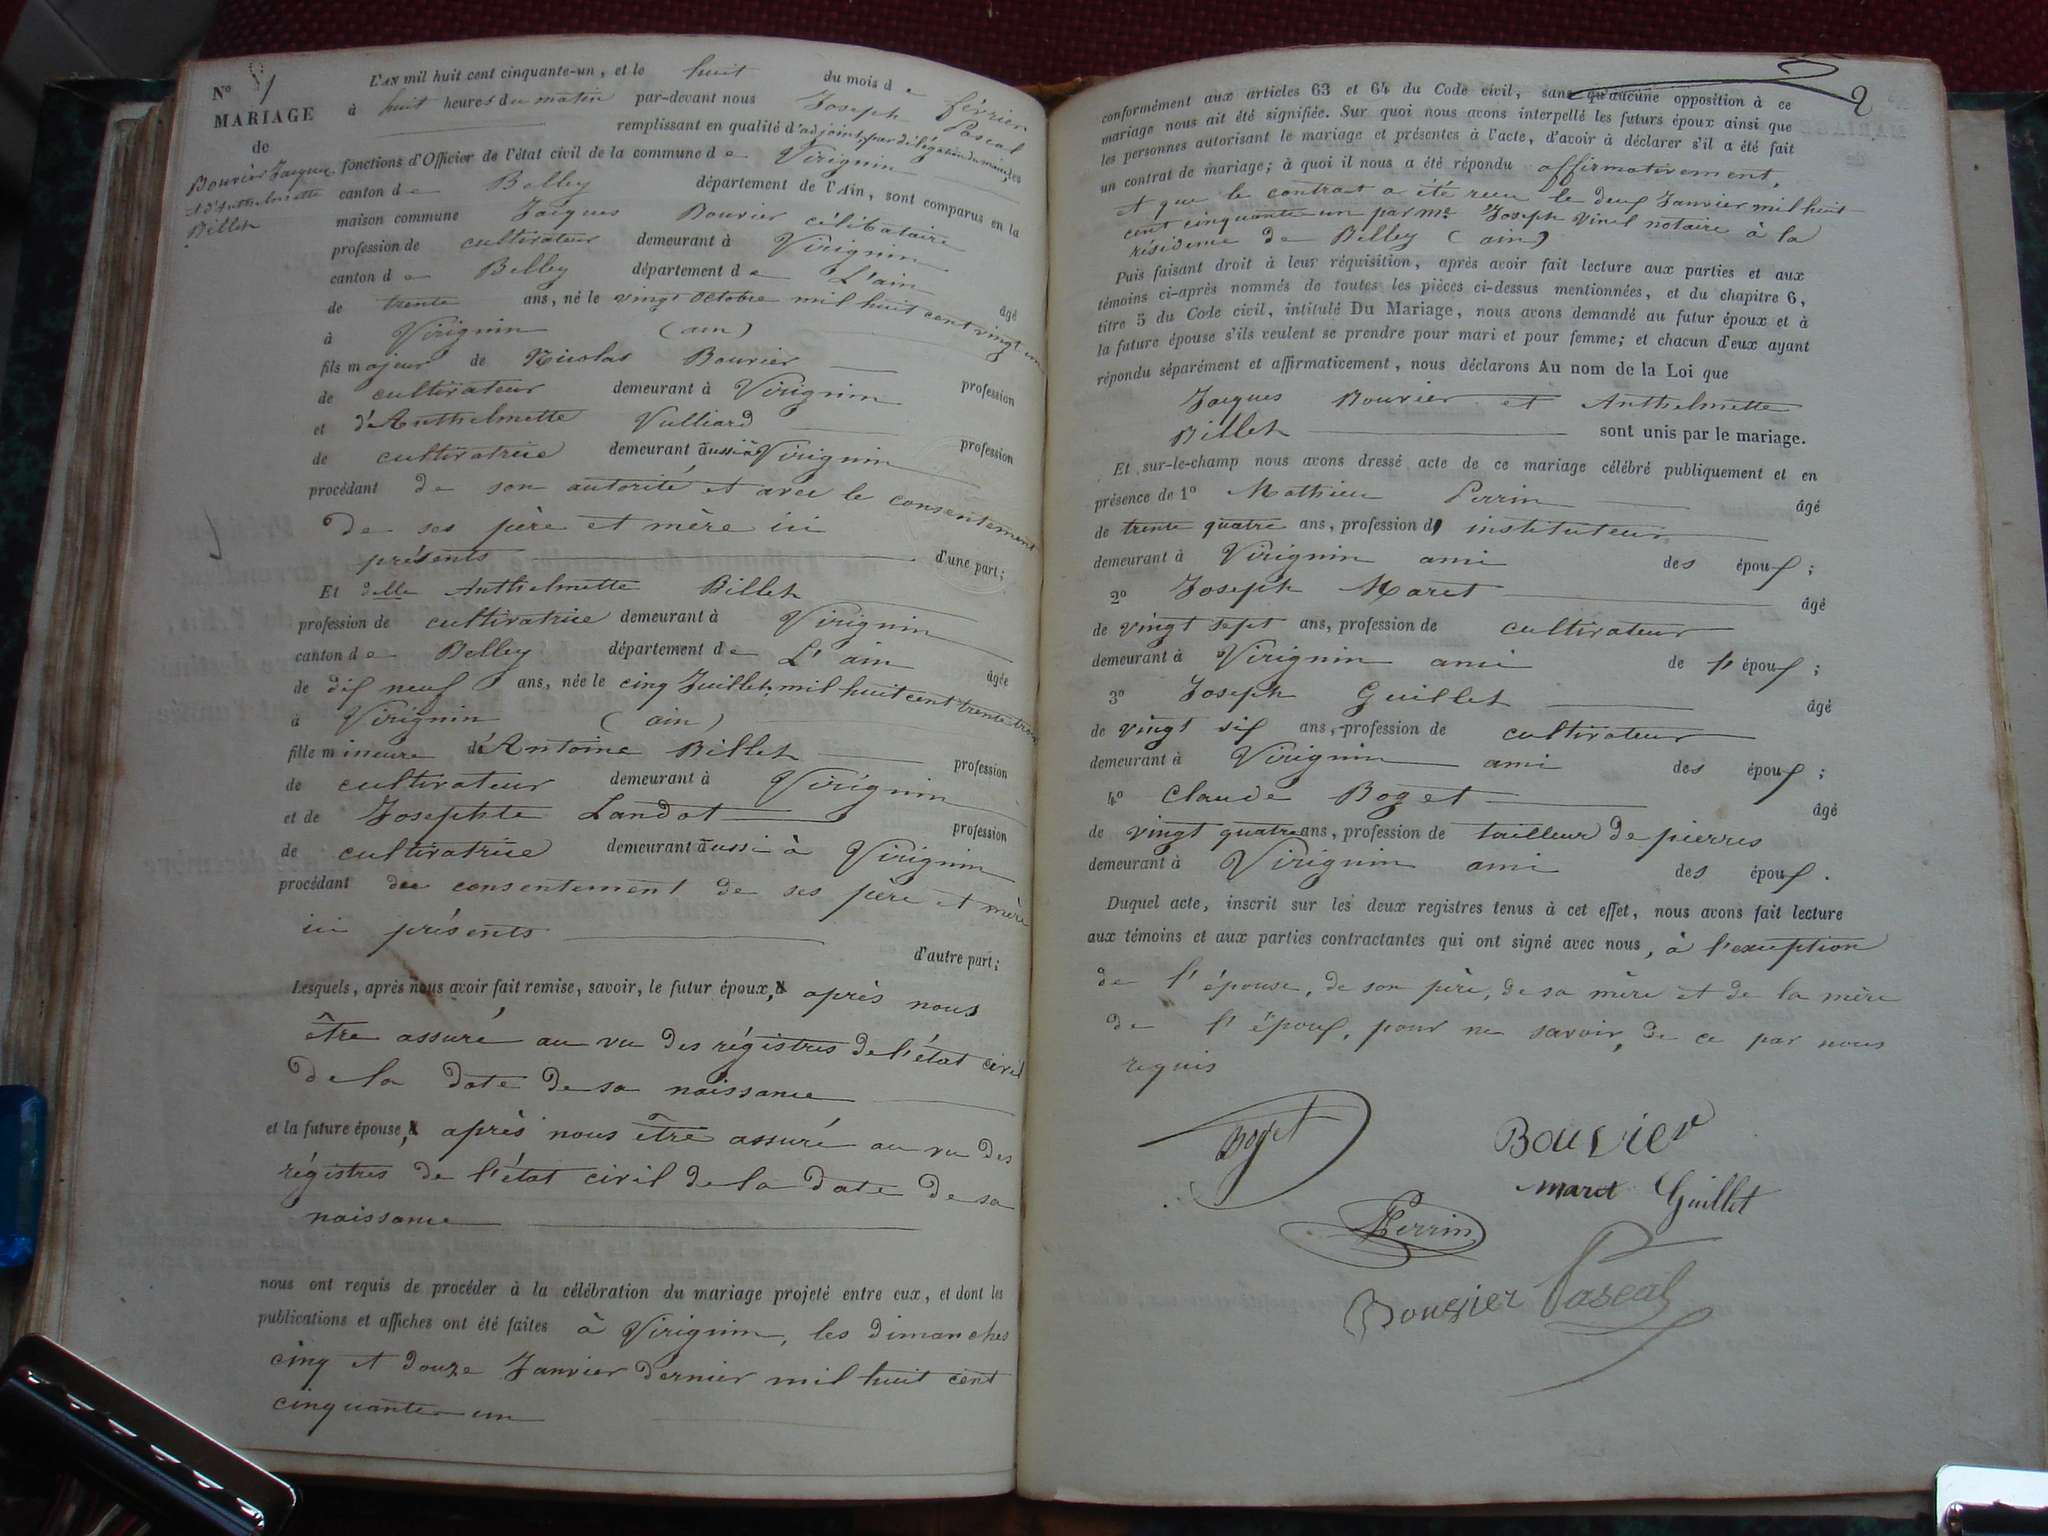 N° 1
MARIAGE
de
Bouvier Jacques
et d'Anthelmette
Billet
L'AN mil huit cent cinquante-un, et le huit du mois de février
à huit heures du matin par-devant nous Joseph Pascal
remplissant en qualité d'adjoint, par délégation du maire, les
fonctions d'Officier de l'état civil de la commune de Virignin
canton de Belley département de l'Ain, sont comparus en la
maison commune Jacques Bouvier célibataire
profession de cultivateur demeurant à Virignin
canton de Belley département de L'ain
âgé
de trente ans, né le vingt octobre mil huit cent vingt un
à Virignin (ain)
fils majeur de Nicolas Bouvier
profession
de cultivateur demeurant à Virignin
et d'Anthelmette Vulliard
profession
de cultivatrice demeurant aussi à Virignin
procédant de son autorité et avec le consentement
de ses père et mère ici
présents d'une part;
Et delle Anthelmette Billet
profession de cultivatrice demeurant à Virignin
canton de Belley département de L'ain
âgée
de dix neuf ans, née le cinq Juillet mil huit cent trente trois
à Virignin (ain)
fille mineure d'Antoine Billet
profession
de cultivateur demeurant à Virignin
et de Josephte Landot
profession
de cultivatrice demeurant aussi à Virignin
procédant du consentement de ses père et mère
ici présents
d'autre part;
Lesquels, après nous avoir fait remise, savoir, le futur époux, après nous
être assuré au vu des régistres de l'état civil
de la date de sa naissance
et la future épouse, après nous être assuré au vu des
régistres de l'état civil de la date de sa
naissance
nous ont requis de procéder à la célébration du mariage projeté entre eux, et dont les
publications et affiches ont été faites à Virignin, les dimanches
cinq et douze Janvier dernier mil huit cent
cinquante un
2
conformément aux articles 63 et 64 du Code civil, sans qu'aucune opposition à ce
mariage nous ait été signifiée. Sur quoi nous avons interpellé les futurs époux ainsi que
les personnes autorisant le mariage et présentes à l'acte, d'avoir à déclarer s'il a été fait
un contrat de mariage; à quoi il nous a été répondu affirmativement,
et que le contrat a été reçu le deux Janvier mil huit
cent cinquante un par me Joseph Vinel notaire à la
résidence de Belley (ain)
Puis faisant droit à leur réquisition, après avoir fait lecture aux parties et aux
témoins ci-après nommés de toutes les pièces ci-dessus mentionnées, et du chapitre 6,
titre 5 du Code civil, intitulé Du Mariage, nous avons demandé au futur époux et à
la future épouse s'ils veulent se prendre pour mari et pour femme; et chacun d'eux ayant
répondu séparément et affirmativement, nous déclarons Au nom de la Loi que
Jacques Bouvier et Anthelmette
Billet sont unis par le mariage.
Et sur-le-champ nous avons dressé acte de ce mariage célébré publiquement et en
présence de 1° Mathieu Perrin âgé
de trente quatre ans, profession d' instituteur
demeurant à Virignin ami des époux;
2° Joseph Maret âgé
de vingt sept ans, profession de cultivateur
demeurant à Virignin ami de l'époux;
3° Joseph Guillet âgé
de vingt six ans, profession de cultivateur
demeurant à Virignin ami des époux;
4° Claude Boget âgé
de vingt quatre ans, profession de tailleur de pierres
demeurant à Virignin ami des époux.
Duquel acte, inscrit sur les deux registres tenus à cet effet, nous avons fait lecture
aux témoins et aux parties contractantes qui ont signé avec nous, à l'exception
de l'épouse, de son père, de sa mère et de la mère
de l'époux, pour ne savoir, de ce par nous
requis
Boget Bouvier
maret Guillet
Perrin
Bouvier Pascal